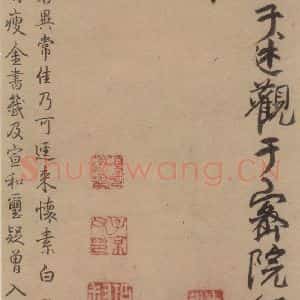 子觀于密院
異常佳乃可來懷素白
瘦金書籤及宣和璽疑曾入
Shufawang.CN